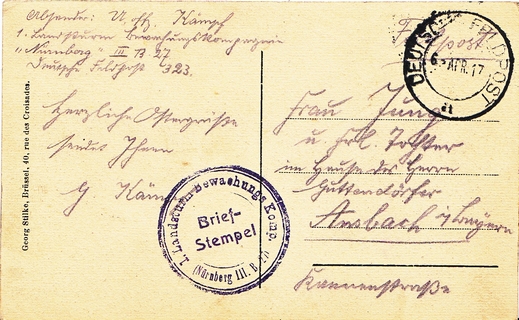 Absender: U.offz. Kämpf
1. Landsturm Bewachungskompagnie
"Nürnberg" III B 27
Deutsche Feldpost 323.
Herzliche Ostergrüße
sendet Ihnen
G Kämpf
Georg Stilke, Brüssel, 40, rue des Croisades.
1. Landsturm-Bewachungs Komp.
Brief-
Stempel
(Nürnberg III. B. 27)
Feldpost
DEUTSCHE FELDPOST
APR. 17
Frau Jung
u. Frl. Tochter
im Hause des Herrn
Guttendörfer
Ansbach i/Bayern
Kannenstraße